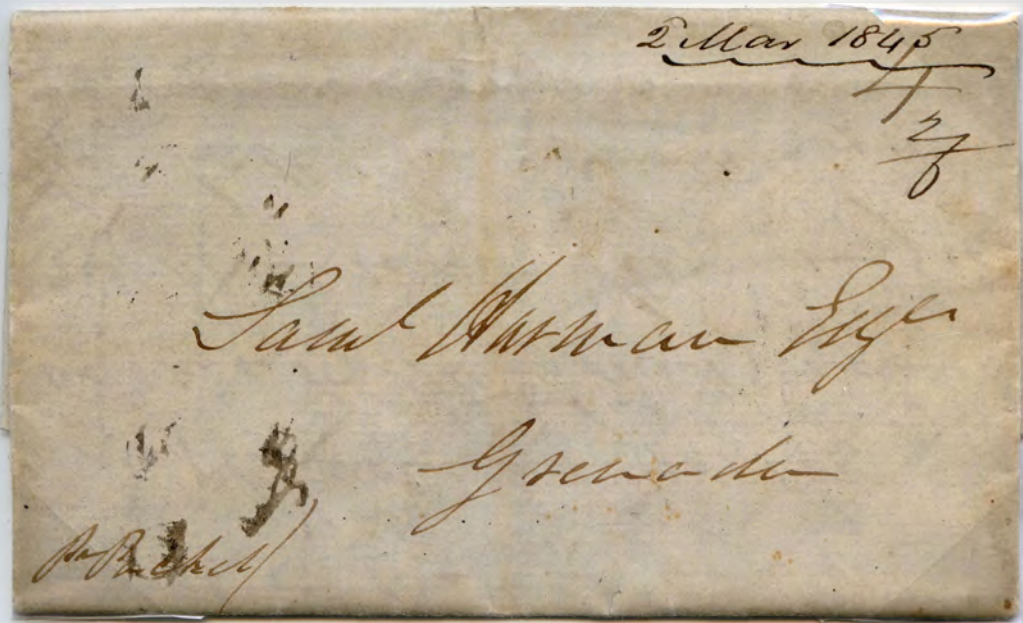 2 Mar 1845
Saml Harman Esqr
Grenada
Pr Packet